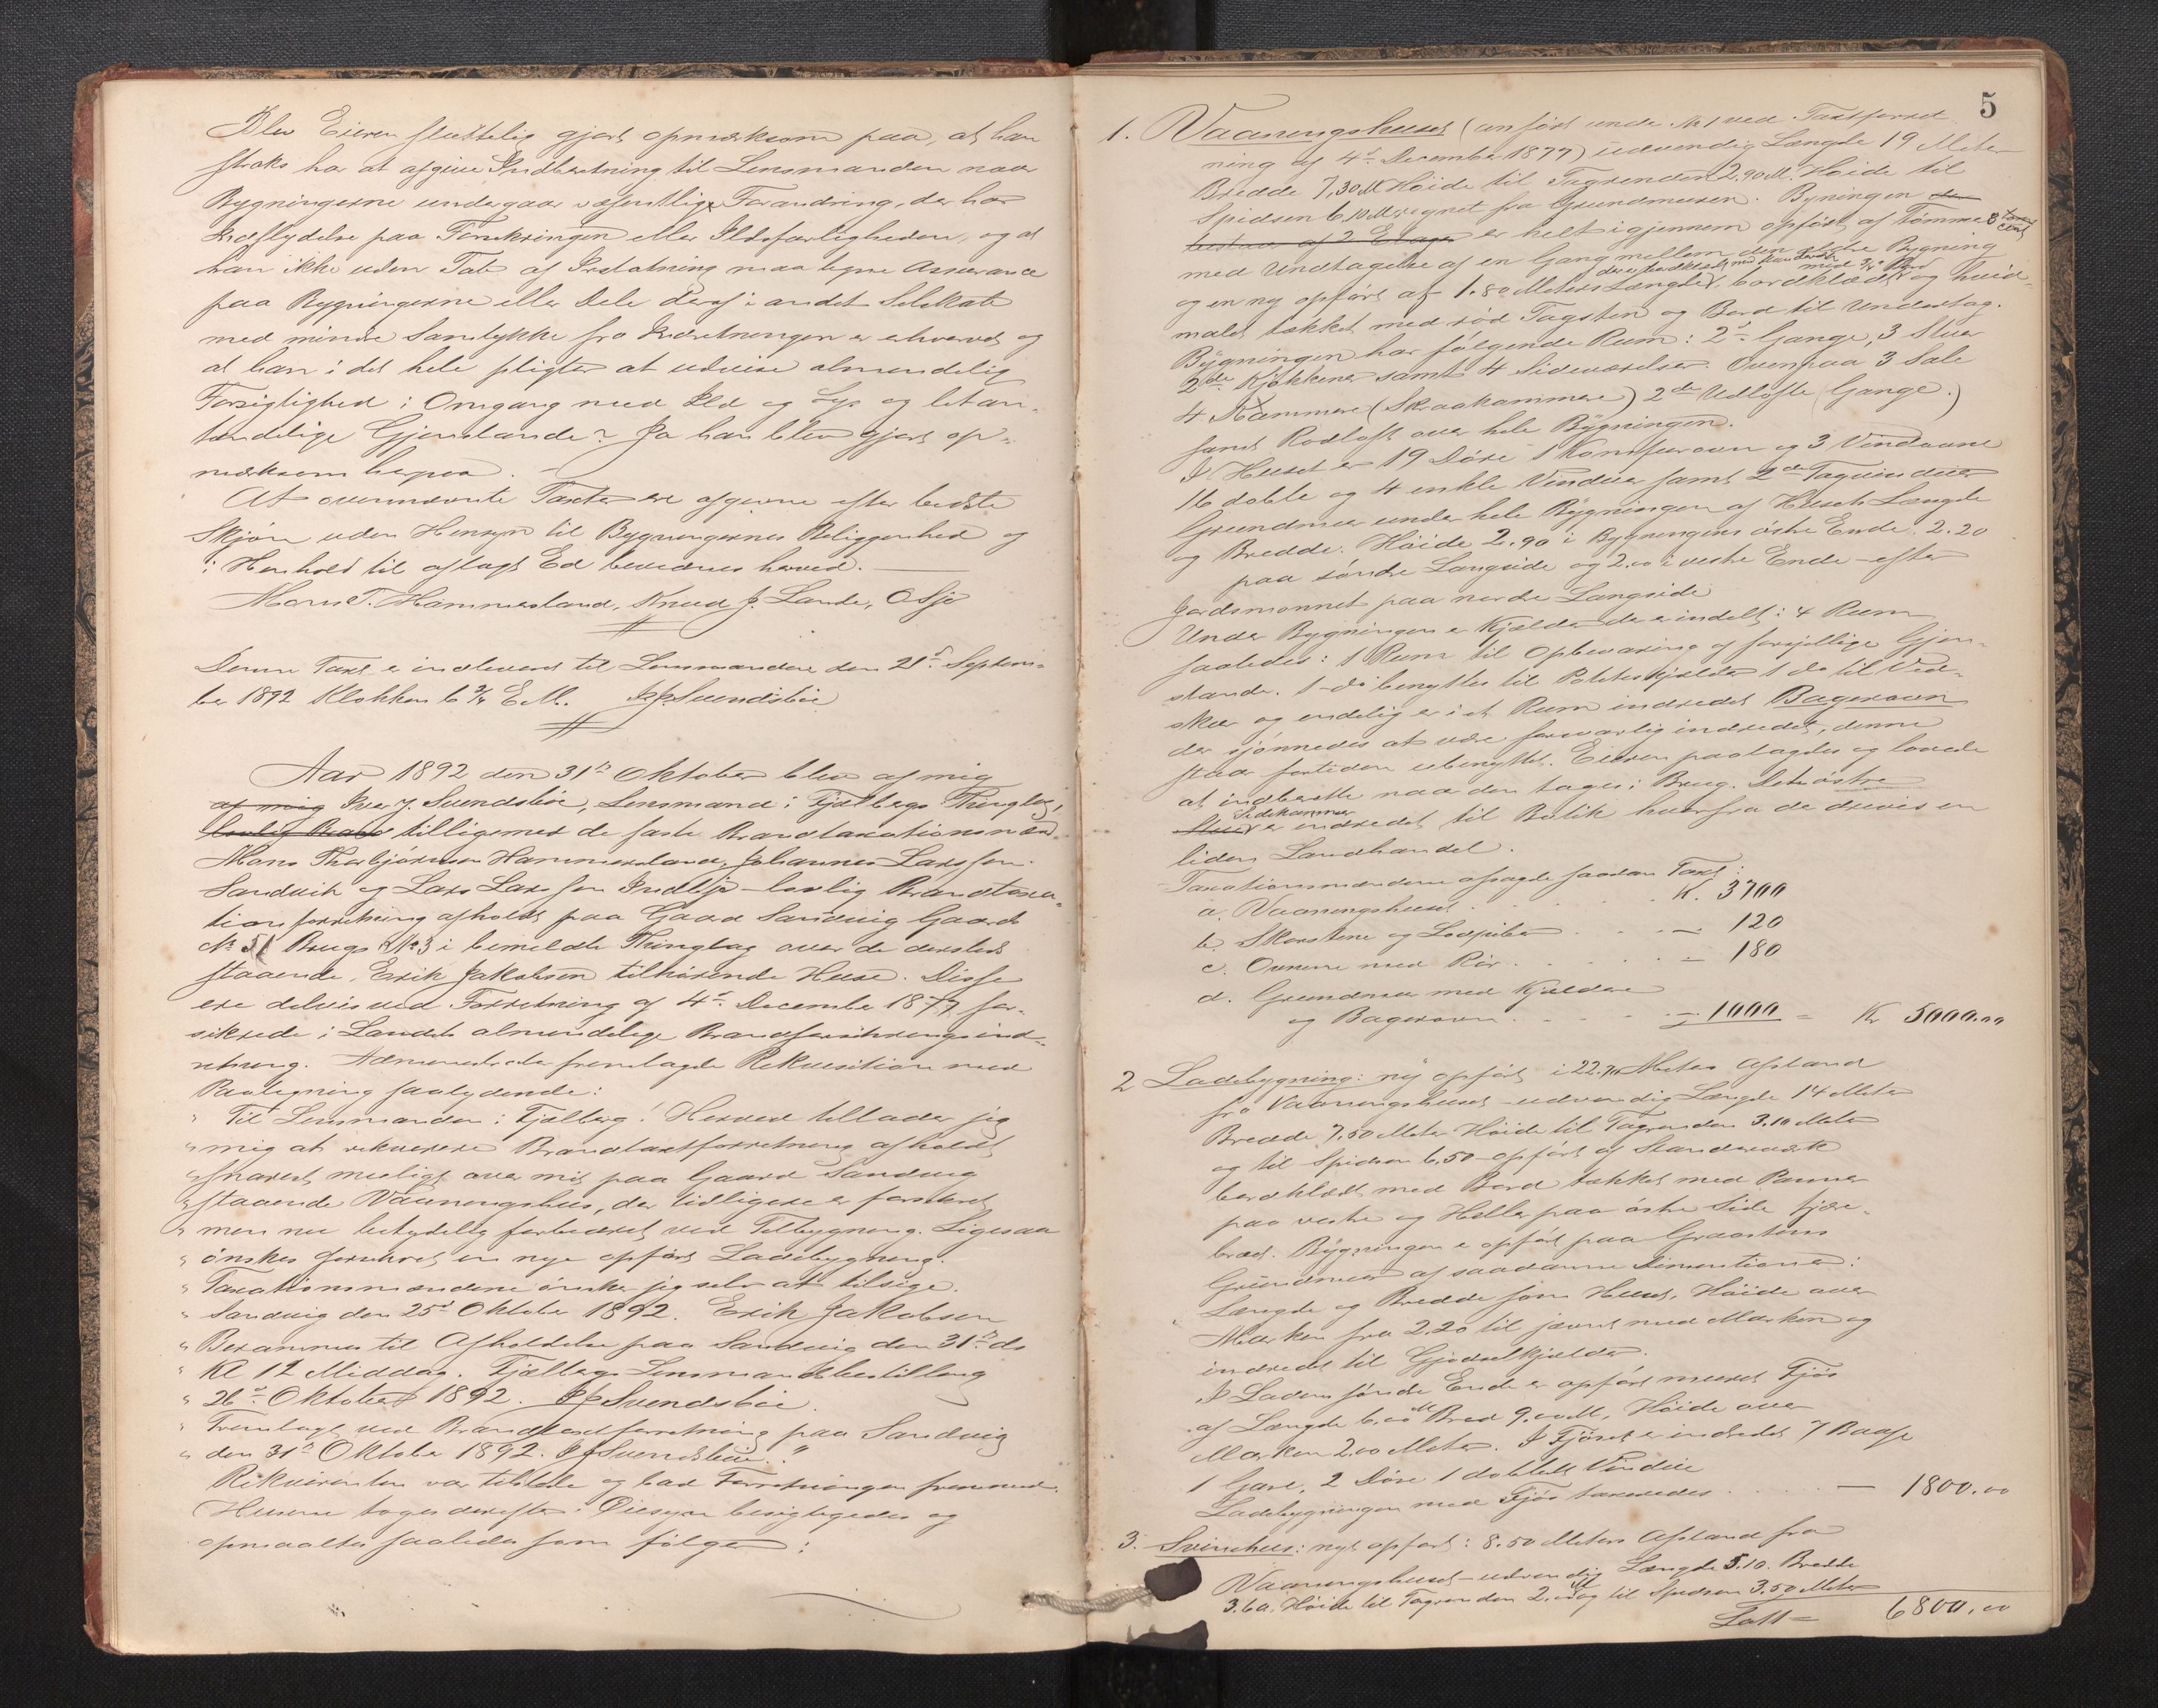 Blev Eieren sluttelig gjort opmærksom paa, at han
straks har at afgive Indberetning til Lensmanden naar
Bygningerne undergaar væsentlige Forandring, der har
Indflydelse paa Forsikringen eller Ildsfarligheden, og at
han ikke uden Tab af Erstatning maa tegne Assurance
paa Bygningerne eller Dele deraf i andet Selskab
med mindre Samtykke fra Indretningen er erhvervet og
at han i det hele pligter at udvise almindelig
Forsigtighed i Omgang med Ild og Lys og letan-
tændelige Gjenstande? Ja han blev gjort op-
mærksom herpaa.
At ovennævnte Taxter ere afgivne efter bedste
Skjøn uden Hensyn til Bygningernes Beliggenhed og
i Henhold til aflagt Ed bevidnes herved.
Mons T. Hammersland, Knud J. Lande, O Sjo
Denne Taxt er indleveret til Lensmanden den 21d Septem-
ber 1892 Klokken 6 3/4 E.M. I J Svendsbøe
Aar 1892 den 31te Oktober blev af mig
af mig Iver J. Svendsbøe, Lensmand i Fjelbergs Thinglag,
lovlig Brand tilligemed de faste Brandtaxationsmænd
Mons Thorbjørnsen Hammersland, Johannes Larssen
Sandvik og Lars Larssen Indresjo lovlig Brandtaxa-
tionsforretning afholdt paa Gaard Sandvig Gaards
No 51 Brugs No 3 i bemeldte Thinglag over de dersteds
staaende, Erik Jakobsen tilhørende Huse. Disse
ere delvis ved Forretning af 4de December 1877 for-
sikrede i Landets almindelige Brandforsikringsind-
retning. Administrator fremlagde Rekvisition med
Paategning saalydende:
" Til Lensmanden i Fjelberg! Herved tillader jeg
" mig at rekvirere Brandtaxtforretning afholdt
" snarest muligt over mit paa Gaard Sandvig
" staaende Vaaningshus, der tidligere er forsikret
" men nu betydelig forbedret ved Tilbygning. Ligesaa
" ønskes forsikret en nye opført Ladebygning.
" Taxationsmændene ønsker jeg selv at tilsige.
" Sandvig den 25d Oktober 1892. Erik Jakobsen
" Berammes til Afholdelse paa Sandvig den 31te ds
" Kl 12 Middag. Fjelbergs Lensmandsbestilling
" 26d Oktober 1892. I J Svendsbøe.
" Fremlagt ved Brandtaxtforretning paa Sandvig
" den 31te Oktober 1892. I J Svendsbøe."
Rekvirenten var tilstede og bad Forretningen fremmed.
Husene toges derefter i Øiesyn besigtigedes og
opmaaltes saaledes som følger:
5
1. Vaaningshuset (anført under No 1 ved Taxtforret
ning af 4de December 1877) udvendig Længde 19 Meter
Bredde 7,30 M Høide til Tagrenden 2,90 M. Høide til
Spidsen 6,10 M regnet fra Grundmuren. Bygningen
bestaar af 2 Etager er helt igjennem opført af Tømmer
med Undtagelse af en Gang mellem den ældre Bygning
og en ny opført af 1.80 Meters Længde, bordklædt med 3/4" Bord og hvid-
malet tækket med rød Tagsten og Bord til Undertag.
Bygningen har følgende Rum: 2de Gange, 3 Stuer
2de Kjøkkener samt 4 Sideværelser. Ovenpaa 3 Sale
4 Kammere (Skraakammere) 2de Udlofte (Gange.)
samt Rodloft over hele Bygningen.
I Huset er 19 Døre 1 Komfurovn og 3 Vindovne
16 doble og 4 enkle Vinduer samt 2de Tagvinduer
Grundmur under hele Bygningen af Husets Længde
og Bredde. Høide 2.90 i Bygningens østre Ende. 2.20
paa søndre Langside og 2.00 i vestre Ende - efter
Jordsmonnet paa nordre Langside
Under Bygningen er Kjelder der er indelt i 4 Rum
saaledes: 1 Rum til Opbevaring af forsjellige Gjen-
stande. 1 do benyttes til Potteskjelder 1 do til Ved-
skur og endelig er i et Rum indredet Bagerovn
der sjønnedes at være forsvarlig indredet, denne
staar fortiden ubenyttet. Eieren paalagdes og lovede
at indberette naar den tages i Brug. Det østre
Stue Sidekammer er indredet til Butik hvorfra de drives en
liden Landhandel.
Taxationsmændene afsagde saadan Taxt:
a. Vaaningshuset . . . . . K. 3700
b. Skorstene og Lodpiber . . . - 120
c. Ovnene med Rør . . . . . - 180
d. Grundmur med Kjeldere
og Bagerovn . . . . . - 1000 = Kr 5000.00
2 Ladebygning: ny opført i 22.70 Meters Afstand
fra Vaaningshuset - udvendig Længde 14 Meter
Bredde 7.50 Meter Høide til Tagrenden 3.10 Meter
og til Spidsen 6,50 opført af Standerværk
bordklædt med Bord tækket med Panner
paa vestre og Heller paa østre Side tjære-
bræd. Bygningen er opført paa Graastens
Grundmur af saadanne Dimentioner:
Længde og Bredde som Huset, Høide over
Marken fra 2.20 til jævnt med Marken og
indredet til Gjødselkjelder.
I Ladens søndre Ende er opført muret Fjøs
af Længde 6.00 M Bred 9.00 M. Høide over
Marken 2.00 Meter. I Fjøset er indredet 7 Baase
1 Gare, 2 Døre 1 dobbelt Vindue
Ladebygningen med Fjøs taxeredes . . . . . - 1800.00
3. Svinehus: nyt opført i 8.50 Meters Afstand fra
Vaaningshuset - udvendig Længde 5.10. Bredde
3.60. Høide til Tagrenden 2.00 M og til Spidsen 3.50 Meter
Latt = 6800.00